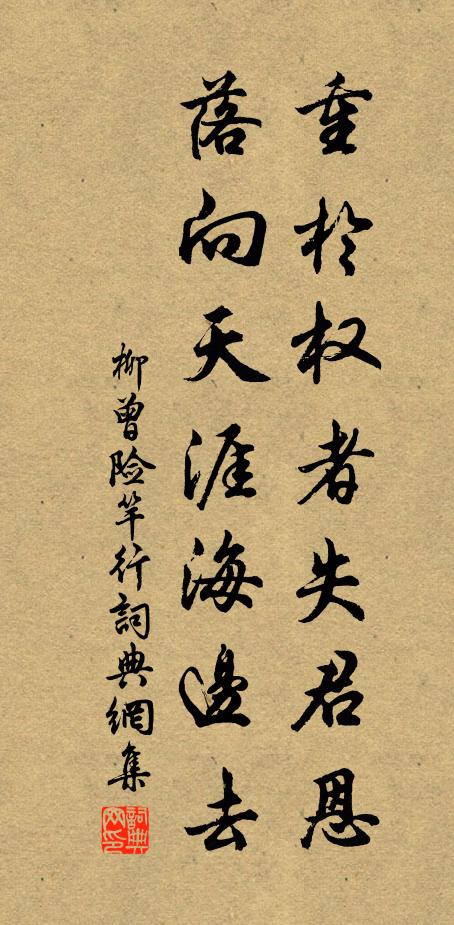 重於权者失君恩
落向天涯海邊去
柳曾險竿行詞典網集
詞典网印